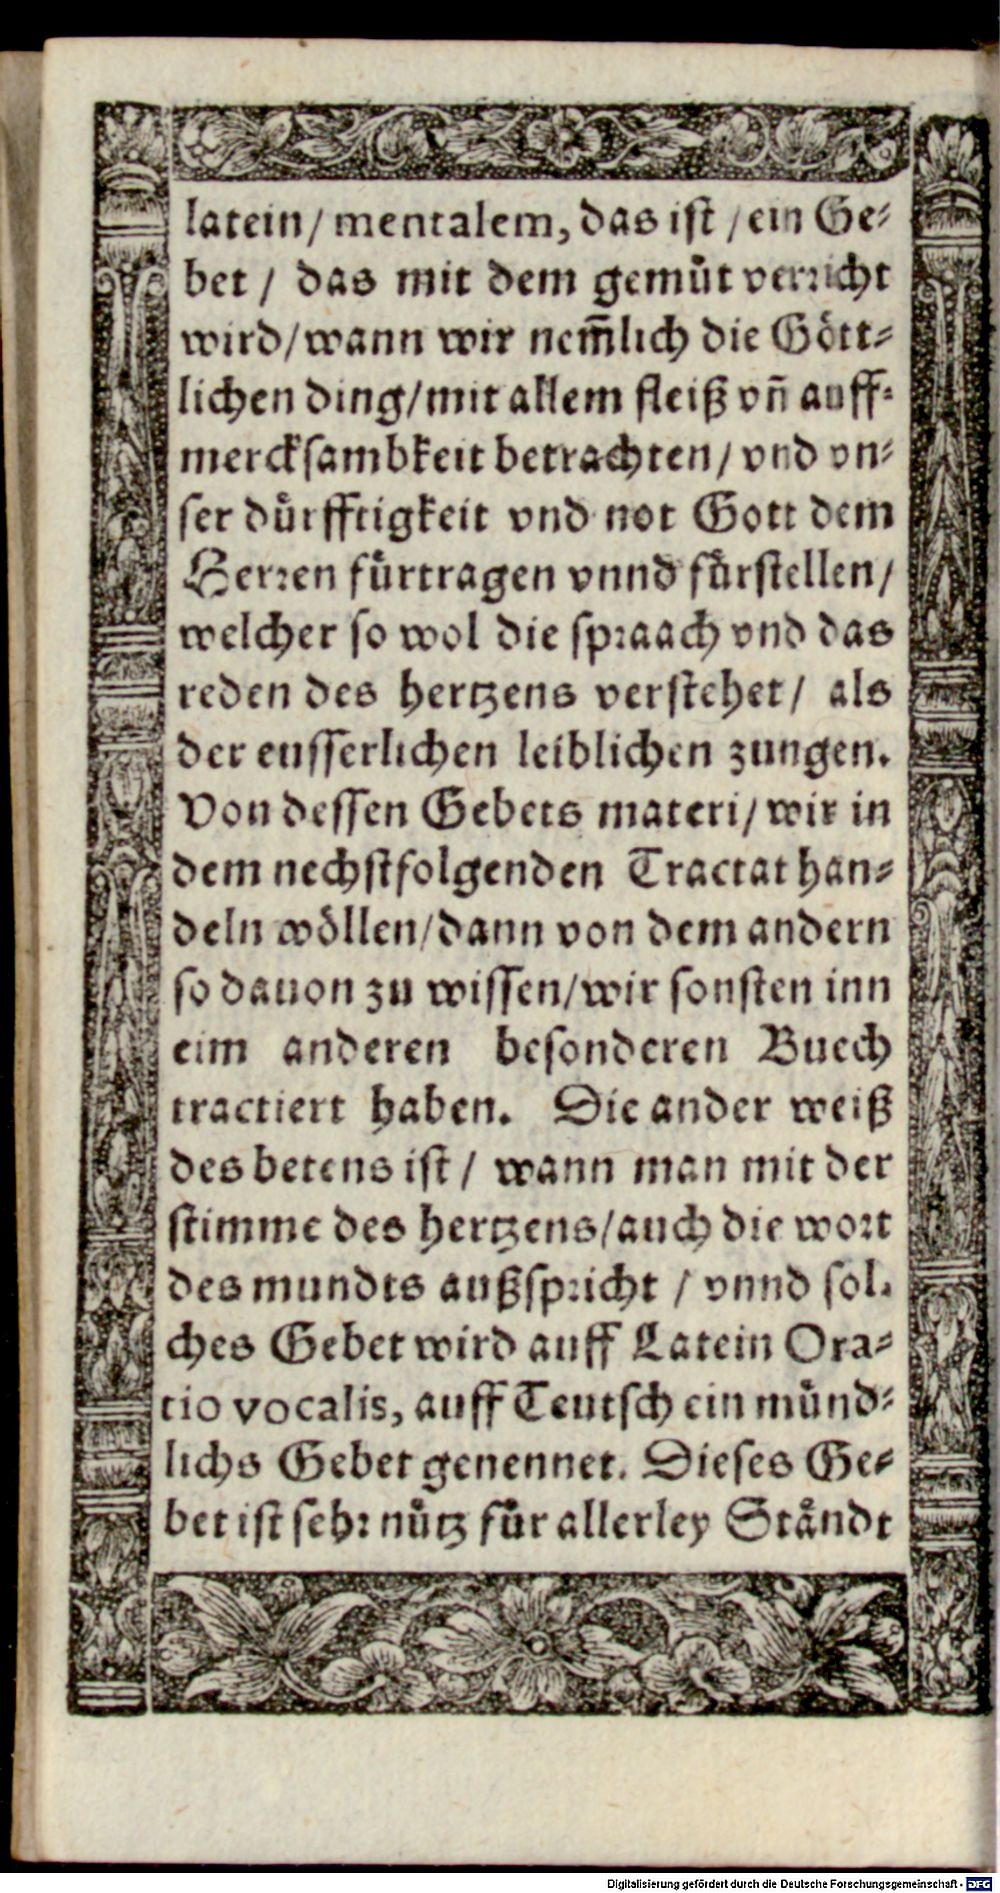 latein/ mentalem, das ist / ein Ge⸗
bet / das mit dem gemuͤt verricht
wird/wann wir nem̃lich die Goͤtt⸗
lichen ding/mit allem fleiß vñ auff⸗
mercksambkeit betrachten/ vnd vn⸗
ser duͤrfftigkeit vnd not Gott dem
Herren fuͤrtragen vnnd fuͤrstellen/
welcher so wol die spraach vnd das
reden des hertzens verstehet/ als
der eusserlichen leiblichen zungen.
Von dessen Gebets materi/ wir in
dem nechstfolgenden Tractat han⸗
deln woͤllen/dann von dem andern
so dauon zu wissen/wir sonsten inn
eim anderen besonderen Buech
tractiert haben. Die ander weiß
des betens ist / wann man mit der
stimme des hertzens/auch die wort
des mundts außspricht / vnnd sol⸗
ches Gebet wird auff Latein Ora⸗
tio vocalis, auff Teutsch ein muͤnd⸗
lichs Gebet genennet. Dieses Ge⸗
bet ist sehr nuͤtz fuͤr allerley Staͤndt
Digitalisierung gefördert durch die Deutsche Forschungsgemeinschaft - DFG